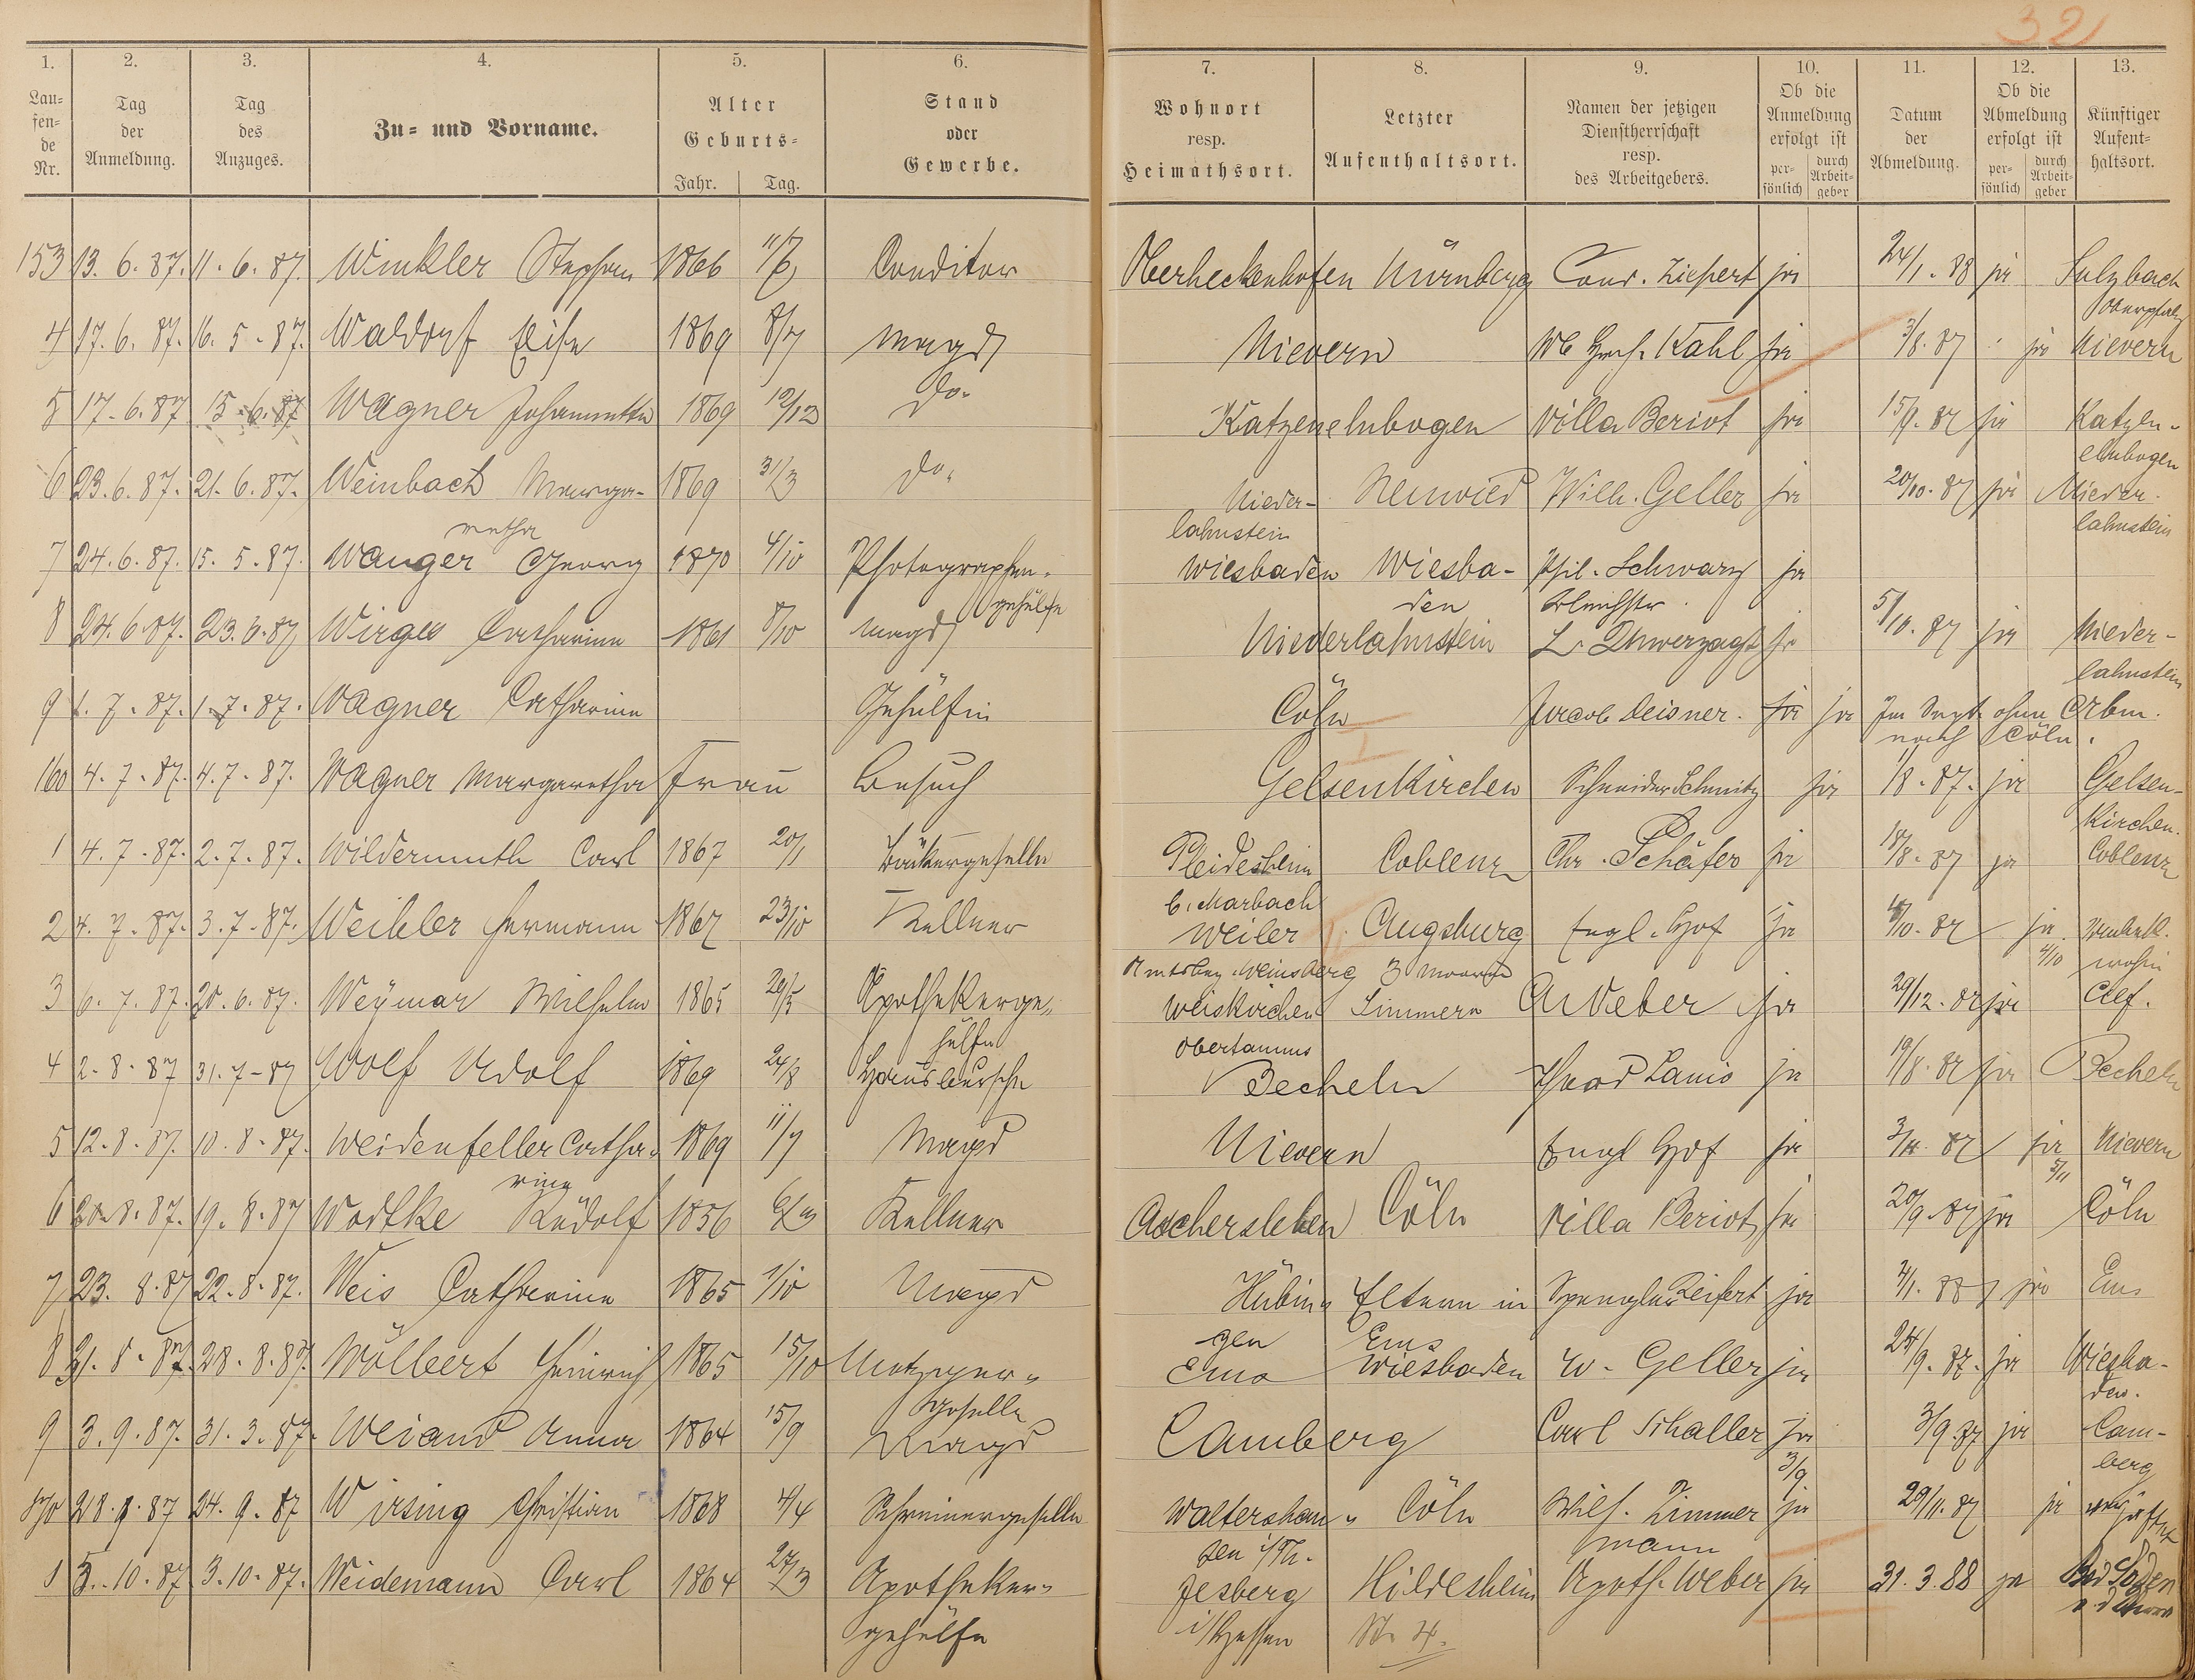 32
1. 2. 3. 4. 5. 6. 7. 8. 9. 10. 11. 12. 13.
Laufende Nr. Tag der Anmeldung. Tag des Anzuges. Zu- und Vorname. Alter Geburts- Jahr. Tag. Stand oder Gewerbe. Wohnort resp. Heimathsort. Letzter Aufenthaltsort. Namen der jetzigen Dienstherrschaft resp. des Arbeitgebers. Ob die Anmeldung erfolgt ist persönlich durch Arbeitgeber Datum der Abmeldung. Ob die Abmeldung erfolgt ist persönlich durch Arbeitgeber Künftiger Aufenthaltsort.
153 13. 6. 87. 11. 6. 87. Winkler Stephan 1866 Conditor Oberheckenhofen Nürnberg Conr. Ziepert ja 24/1. 88 ja Sulzbach
Oberpfalz
4 17. 6. 87. 16. 5. 87. Waldorf Elise 1869 8/7 Magd Nievern Kahl ja 3/8. 87 ja Nievern
5 17. 6. 87 15. 6. 87 Wagner Johannette 1869 12/12 do. Katzenelnbogen Villa Beriot ja 15/9. 87 ja Katzen-
elnbogen
6 23. 6. 87. 21. 6. 87. Weinbach Marga- 1869 31/3 do. Nieder- Neuwied Wilh. Geller ja 20/10. 87 ja Nieder-
retha lahnstein lahnstein
7 24. 6. 87. 15. 5. 87. Wanger Georg 1870 4/10 Photographen- Wiesbaden Wiesba- Phil. Schwarz ja
gehülfe den
8 24. 6. 87. 23. 6. 87 Wirges Catharine 1861 8/10 Magd Niederlahnstein L. Unverzagt ja 5/10. 87 ja Nieder-
lahnstein
9 1. 7. 87. 1. 7. 87. Wagner Catharine Gehülfin Cöln Jacob Deisner. ja ja Im Sept. ohne Abm.
nach Cöln.
160 4. 7. 87. 4. 7. 87. Wagner Margaretha Frau Besuch Gelsenkirchen Schneider Schmitz ja 1/8. 87. ja Gelsen-
kirchen.
1 4. 7. 87. 2. 7. 87. Wildermuth Carl 1867 20/1 Bäckergeselle Pleidesheim Coblenz Chr. Schäfer ja 18/8. 87 ja Coblenz
b. Marbach
2 4. 7. 87. 3. 7. 87. Weibler Hermann 1867 23/10 Kellner Weiler Augsburg Engl. Hof ja 4/10. 87 ja Unbek.
Weinsberg 3 4/10 wohin
3 6. 7. 87. 20. 6. 87. Weÿmar Wilhelm 1865 Apothekerge- Weiskirchen Simmern A Weber ja 29/12. 87 ja Clef.
hülfe Obertaunus
4 2. 8. 87 31. 7. 87 Wolf Adolf 1869 24/8 Hausbursche Becheln Lanio ja 19/8. 87 ja Becheln
5 12. 8. 87. 10. 8. 87. Weidenfeller Catha- 1869 11/7 Magd Nievern Engl Hof ja 87 ja Nievern
rine 5/11
6 20. 8. 87. 19. 8. 87 Wodtke Rudolf 1856 Kellner Aschersleben Cöln Villa Beriot ja 20/9. 87 ja Cöln
7 23. 8. 87 22. 8. 87. Weis Catharine 1865 1/10 Magd Hübin- Eltern in Spengler Seifert ja 4/1. 88 ja Ems
gen Ems
8 31. 8. 87. 28. 8. 87. Wölbert Heinrich 1865 15/10 Metzger- Ems Wiesbaden W. Geller ja 24/9. 87. ja Wiesba-
geselle den.
9 3. 9. 87. 31. 3. 87. Weiand Anna 1864 15/9 Magd Camberg Carl Schaller ja 3/9 87 ja Cam-
3/9 berg
170 28. 9. 87 24. 9. 87 Wirsing Christian 1868 4/4 Schreinergeselle Waltershau- Cöln Wilh. Zimmer ja 29/11. 87 ja
sen i/Th. mann
1 5. 10. 87 3. 10. 87. Weidemann Carl 1864 27/3 Apotheker- Jesberg Hildesheim Apoth. Weber ja 31. 3. 88 ja Bad Soden
gehülfe i/Hessen